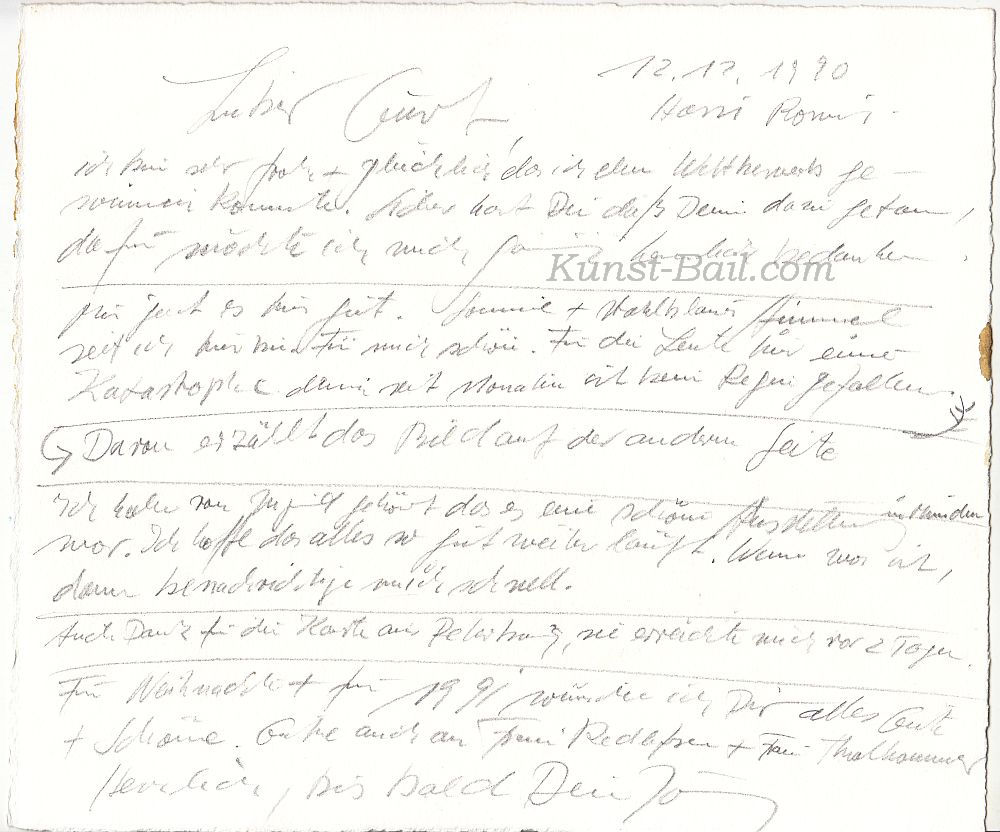 12.12.1990
Lieber Curt,
ich bin sehr froh + glücklich, das ich den Wettbewerb ge-
winnen konnte. Sicher hast Du daß Dein dazu getan,
dafür möchte ich mich herzlich bedanken.
Kunst-Bail.com
Mir geht es hier gut. Sonne + Himmel
seit ich hier bin. Für mich schön. Für die Leute hier eine
Katastrophe denn seit Monaten ist kein Regen gefallen.
Davon erzählt das Bild auf der anderen Seite
Ich habe von gehört das es eine schöne Ausstellung in München
war. Ich hoffe das alles so gut weiter läuft. Wenn was ist,
dann benachrichtige mich schnell.
Auch Dank für die Karte aus, sie erreichte mich vor 2 Tagen.
Für Weihnachten + für 1991 wünsche ich Dir alles Gute
+ Schöne. auch an Frau + Frau Thalhammer
Herzlich, bis bald Dein